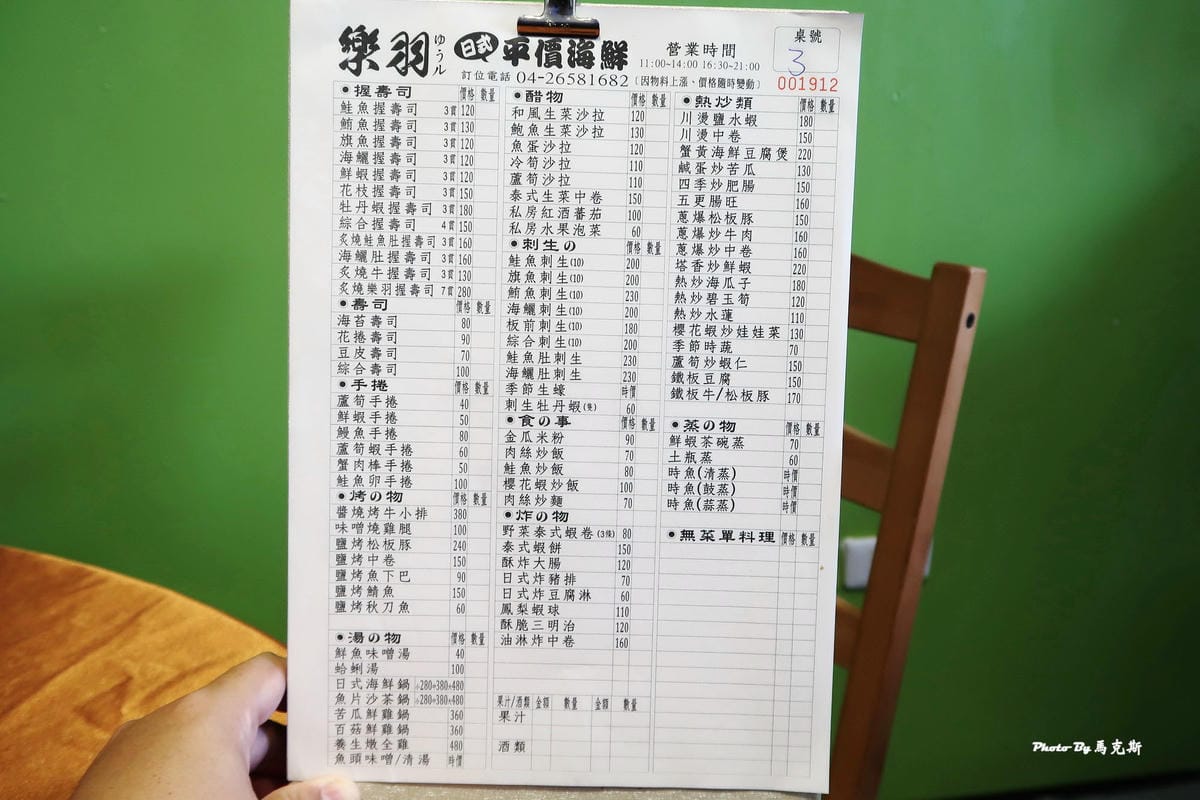 樂羽 ゆうル 日式 平價海鮮
營業時間
11:00~14:00 16:30~21:00
訂位電話 04-26581682 (因物料上漲、價格隨時變動)
桌號
3
001912
●握壽司 價格 數量
鮭魚握壽司 3貫 120
鮪魚握壽司 3貫 130
旗魚握壽司 3貫 120
海鱺握壽司 3貫 120
鮮蝦握壽司 3貫 120
花枝握壽司 3貫 150
牡丹蝦握壽司 3貫 180
綜合握壽司 4貫 150
炙燒鮭魚肚握壽司 3貫 160
海鱺肚握壽司 3貫 160
炙燒牛握壽司 3貫 130
炙燒樂羽握壽司 7貫 280
●壽司 價格 數量
海苔壽司 80
花捲壽司 90
豆皮壽司 70
綜合壽司 100
●手捲 價格 數量
蘆筍手捲 40
鮮蝦手捲 50
鰻魚手捲 80
蘆筍蝦手捲 60
蟹肉棒手捲 50
鮭魚卵手捲 100
●烤の物 價格 數量
醬燒烤牛小排 380
味噌燒雞腿 100
鹽烤松板豚 240
鹽烤中卷 150
鹽烤魚下巴 90
鹽烤鯖魚 150
鹽烤秋刀魚 60
●湯の物 價格 數量
鮮魚味噌湯 40
蛤蜊湯 100
日式海鮮鍋 小280中380大480
魚片沙茶鍋 小280中380大480
苦瓜鮮雞鍋 360
百菇鮮雞鍋 360
養生燉全雞 480
魚頭味噌/清湯 時價
●醋物 價格 數量
和風生菜沙拉 120
鮑魚生菜沙拉 130
魚蛋沙拉 120
冷筍沙拉 110
蘆筍沙拉 110
泰式生菜中卷 150
私房紅酒蕃茄 100
私房水果泡菜 60
●刺生の 價格 數量
鮭魚刺生(10) 200
旗魚刺生(10) 200
鮪魚刺生(10) 230
海鱺刺生(10) 200
板前刺生(10) 180
綜合刺生(10) 200
鮭魚肚刺生 230
海鱺肚刺生 230
季節生蠔 時價
刺生牡丹蝦(隻) 60
●食の事 價格 數量
金瓜米粉 90
肉絲炒飯 70
鮭魚炒飯 80
櫻花蝦炒飯 100
肉絲炒麵 70
●炸の物
野菜泰式蝦卷(3條) 80
泰式蝦餅 150
酥炸大腸 120
日式炸豬排 70
日式炸豆腐淋 60
鳳梨蝦球 110
酥脆三明治 120
油淋炸中卷 160
果汁/酒類 金額 數量 金額 數量
果汁
酒類
●熱炒類 價格 數量
川燙鹽水蝦 180
川燙中卷 150
蟹黃海鮮豆腐煲 220
鹹蛋炒苦瓜 130
四季炒肥腸 150
五更腸旺 160
蔥爆松板豚 150
蔥爆炒牛肉 160
蔥爆炒中卷 160
塔香炒鮮蝦 220
熱炒海瓜子 180
熱炒碧玉筍 120
熱炒水蓮 110
櫻花蝦炒娃娃菜 130
季節時蔬 70
蘆筍炒蝦仁 150
鐵板豆腐 150
鐵板牛/松板豚 170
●蒸の物 價格 數量
鮮蝦茶碗蒸 70
土瓶蒸 60
時魚(清蒸) 時價
時魚(鼓蒸) 時價
時魚(蒜蒸) 時價
●無菜單料理 價格 數量
Photo By 馬克斯